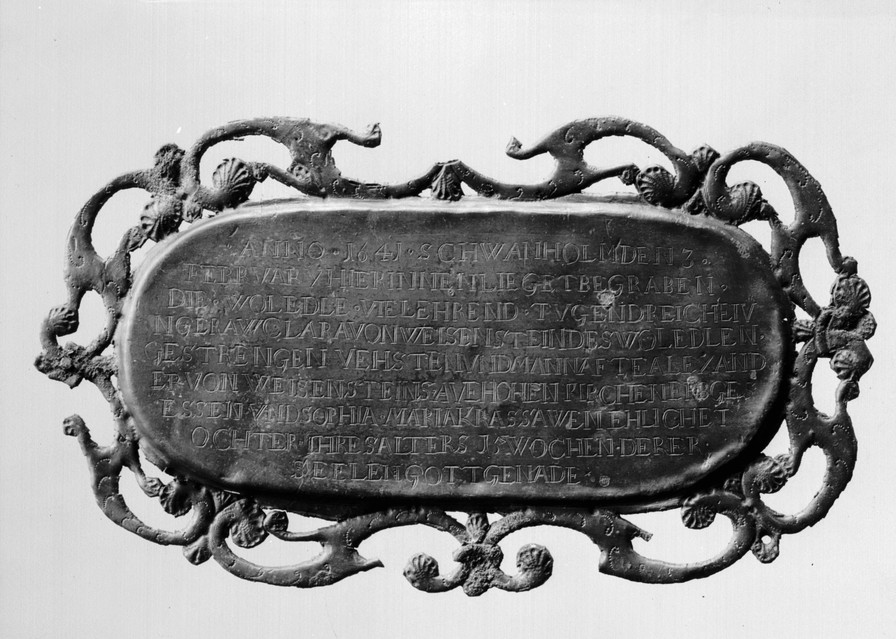 ANNO · 1641 · SCHWANHOLM DEN 3 ·
HIERINNEN LIEGET BEGRABEN ·
DIE · WOLEDLE · VIELEHREND · TUGENDREICHE IV
NGFRAW CLARA VON WEISENSTEIN DES WOLEDLEN ·
GESTRENGEN VEHSTEN VND MANNAFTE ALEXAND
ER VON WEISENSTEINS AVF HOHEN KIRCHEN ERBGE
ESSEN VND SOPHIA MARIA KRASSAWEN EHLICHE T
OCHTER IHRES ALTERS 15 WOCHEN · DERER ·
SEELEN GOTT GENADE ·